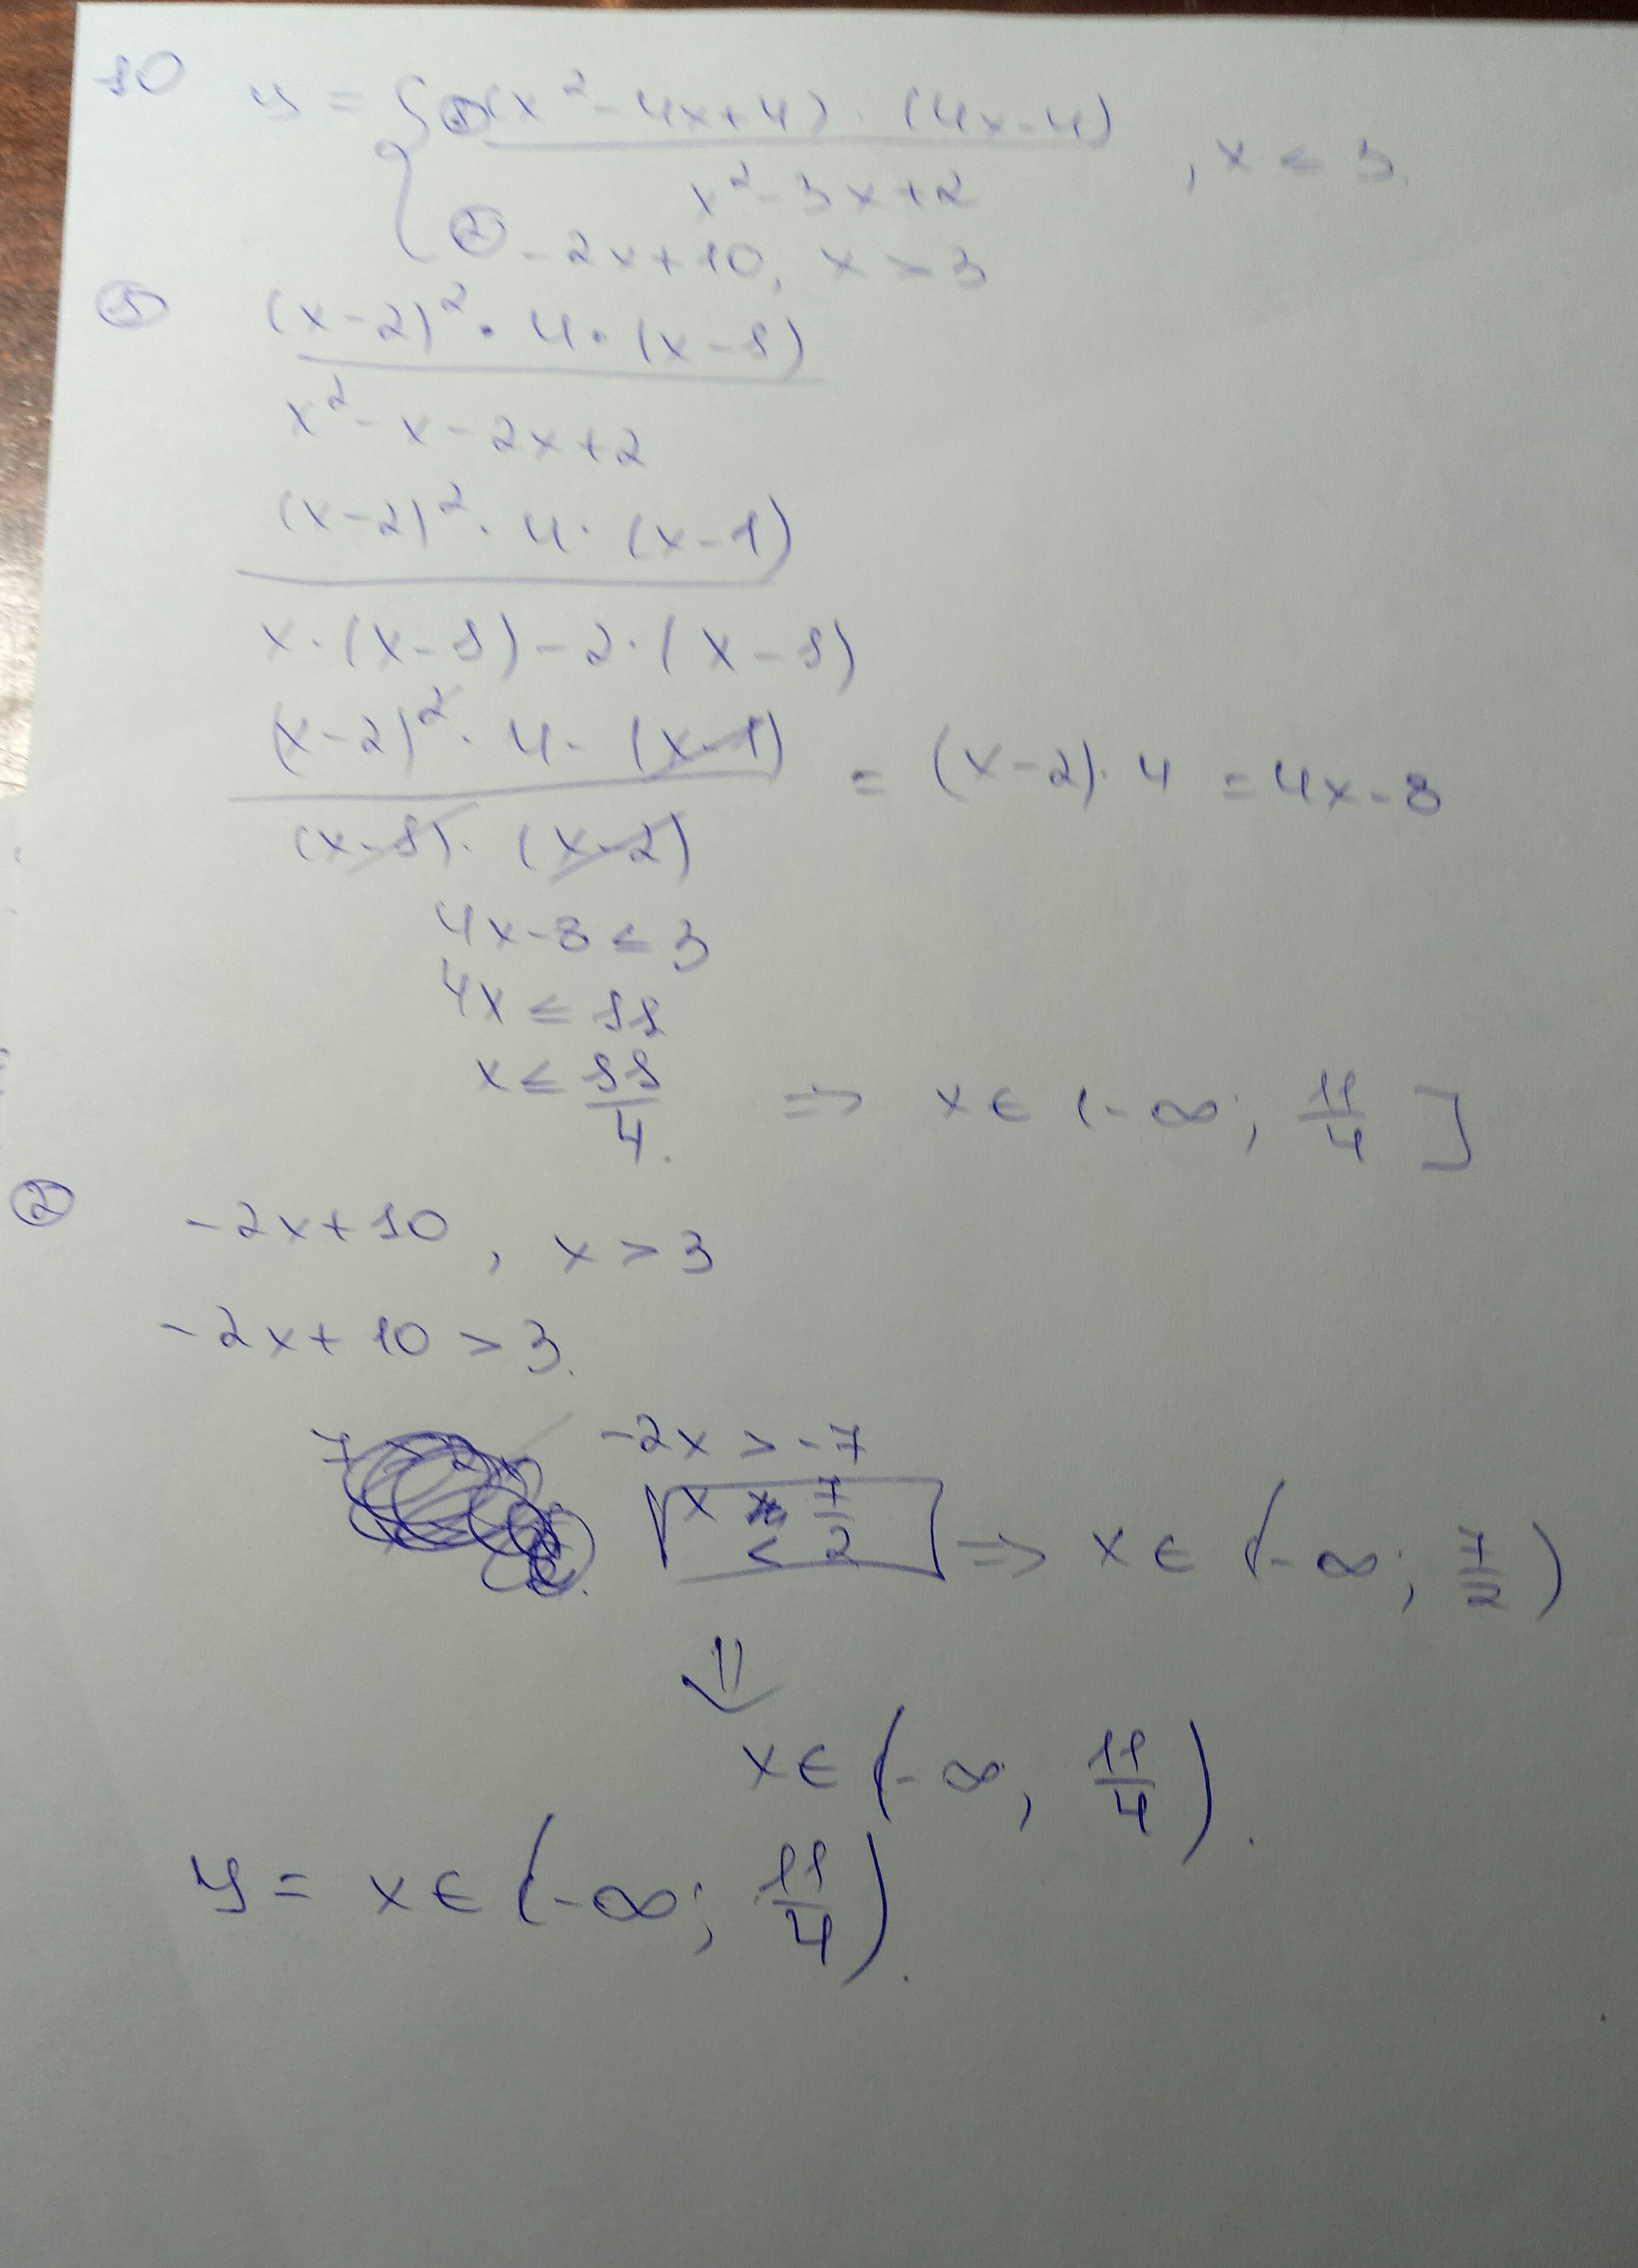 10 y = { ① (x² - 4x + 4) · (4x - 4) / x² - 3x + 2 , x ≤ 3.
② -2x + 10, x > 3
① (x - 2)² · 4 · (x - 1)
x² - x - 2x + 2
(x - 2)² · 4 · (x - 1)
x · (x - 1) - 2 · (x - 1)
(x - 2)² · 4 · (x - 1) / (x - 1) · (x - 2) = (x - 2) · 4 = 4x - 8
4x - 8 ≤ 3
4x ≤ 11
x ≤ 11/4. => x ∈ (-∞; 11/4]
② -2x + 10 , x > 3
-2x + 10 > 3.
-2x > -7
x < 7/2 => x ∈ (-∞; 7/2)
⇓
x ∈ (-∞, 11/4).
y = x ∈ (-∞; 11/4).